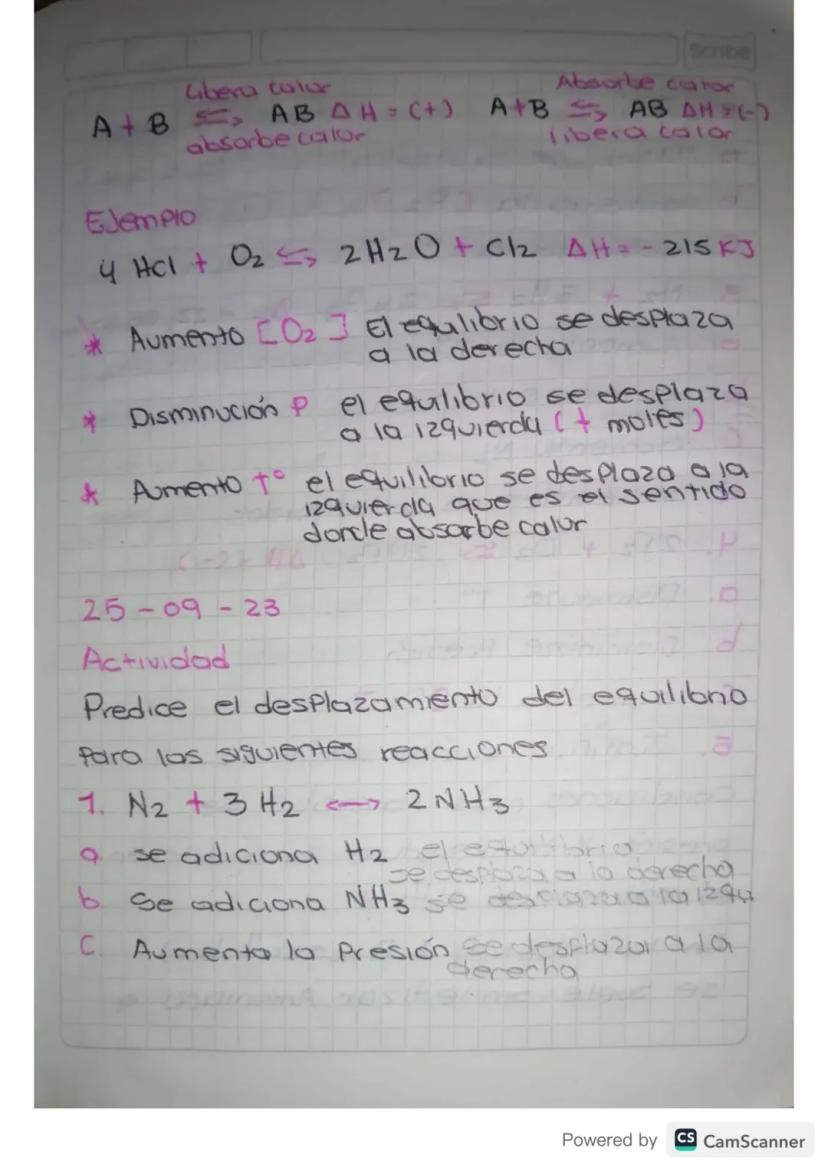 Scribe
Libera calor Absorbe calor
A + B ⇆ AB ΔH = (+) A+B ⇆ AB ΔH = (-)
absorbe calor libera calor
Ejemplo
4 HCl + O2 ⇆ 2H2O + Cl2 ΔH = - 215 KJ
* Aumento [O2] El equlibrio se desplaza
a la derecha
* Disminución P el equlibrio se desplaza
a la izquierda (+ moles)
* Aumento t° el equilibrio se desplaza a la
izquierda que es el sentido
donde absorbe calor
25 - 09 - 23
Actividad
Predice el desplazamiento del equilibrio
para las siguientes reacciones
1. N2 + 3 H2 ⟷ 2 NH3
a se adiciona H2 el equilibrio
se desplaza a la derecha
b Se adiciona NH3 se desplaza a la izqu
C. Aumenta la Presión se desplaza a la
derecha
Powered by CS CamScanner